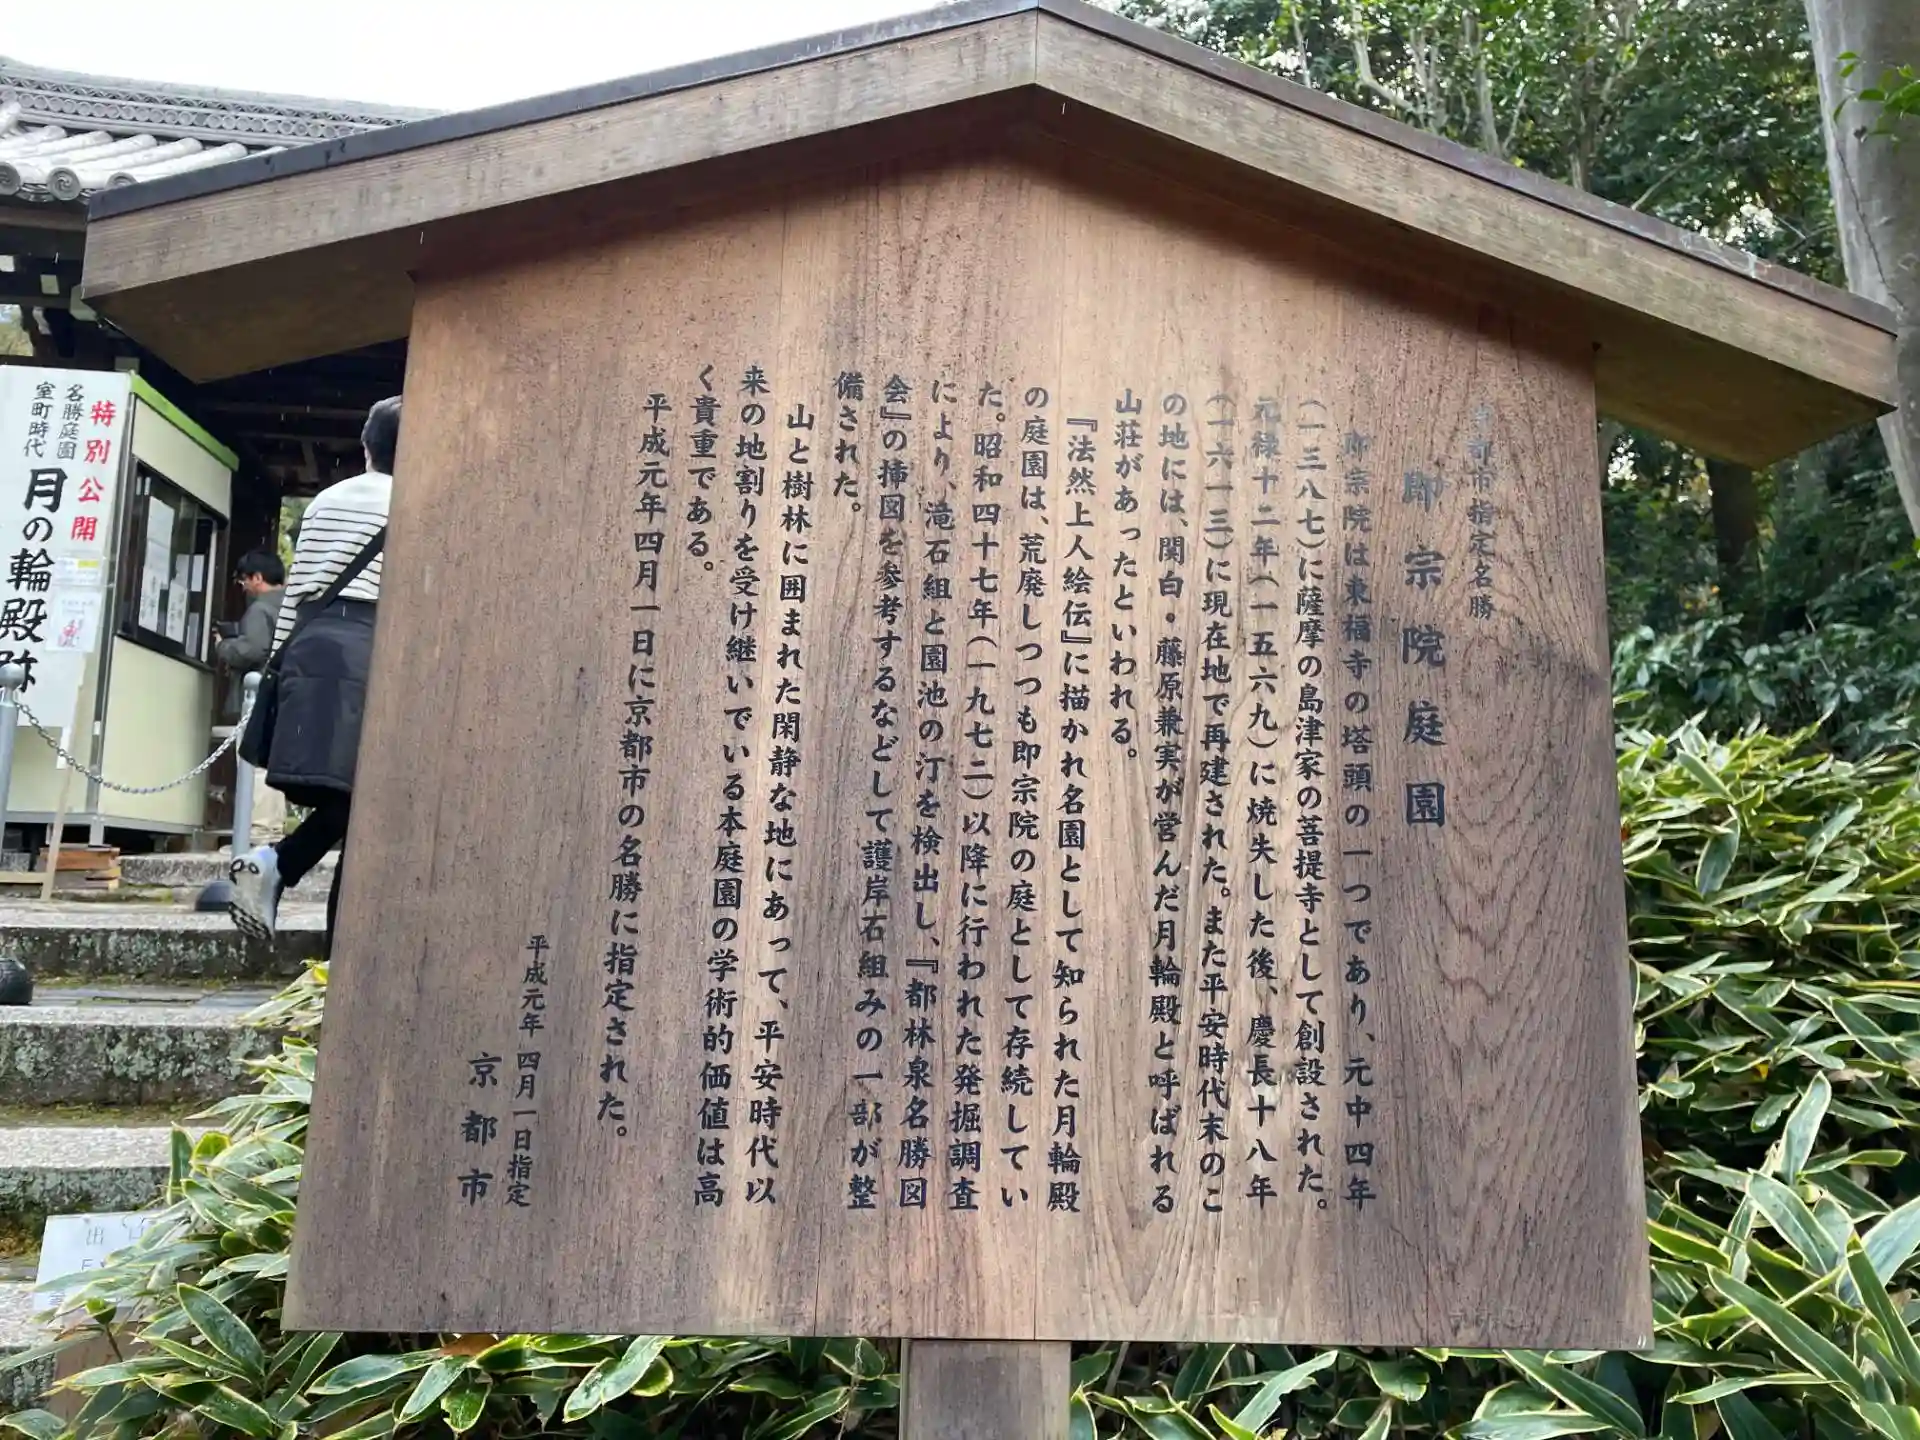 京都市指定名勝
即宗院庭園
即宗院は東福寺の塔頭の一つであり、元中四年
(一三八七)に薩摩の島津家の菩提寺として創設された。
元禄十二年(一五六九)に焼失した後、慶長十八年
(一六一三)に現在地で再建された。また平安時代末のこ
の地には、関白・藤原兼実が営んだ月輪殿と呼ばれる
山荘があったといわれる。
『法然上人絵伝』に描かれ名園として知られた月輪殿
の庭園は、荒廃しつつも即宗院の庭として存続してい
た。昭和四十七年(一九七二)以降に行われた発掘調査
により、滝石組と園池の汀を検出し、『都林泉名勝図
会』の挿図を参考するなどして護岸石組みの一部が整
備された。
山と樹林に囲まれた閑静な地にあって、平安時代以
来の地割りを受け継いでいる本庭園の学術的価値は高
く貴重である。
平成元年四月一日に京都市の名勝に指定された。
平成元年四月一日指定
京都市
特別公開
名勝庭園
室町時代
月の輪殿跡
出口